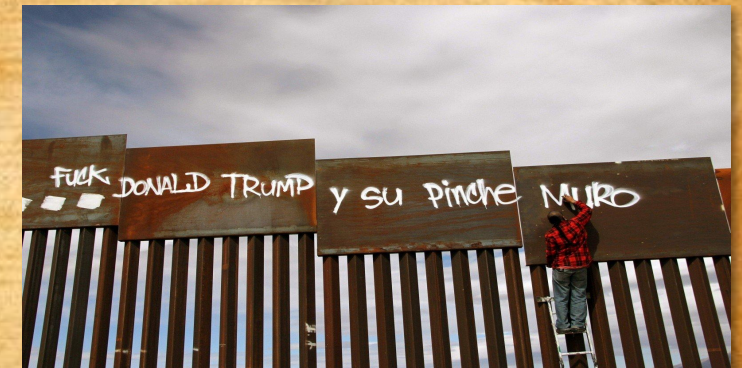 FUCK DONALD TRUMP y SU PINCHE MURO